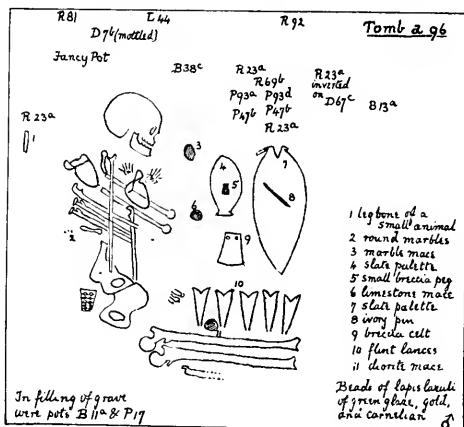 R81 L44 R92
Tomb a 96
D7b (mottled)
Fancy Pot
B38c
R23a
R69b
P93a P93d
P47b P47b
R23a
R23a
inverted
on
D67c
B13a
R23a
1
2
3
4
5
6
7
8
9
10
11
1 leg bone of a
small animal
2 round marbles
3 marble mace
4 slate palette
5 small breccia peg
6 limestone mace
7 slate palette
8 ivory pin
9 breccia celt
10 flint lances
11 diorite mace
Beads of lapis lazuli
of green glaze, gold,
and carnelian ♂
In filling of grave
were pots B11a & P17